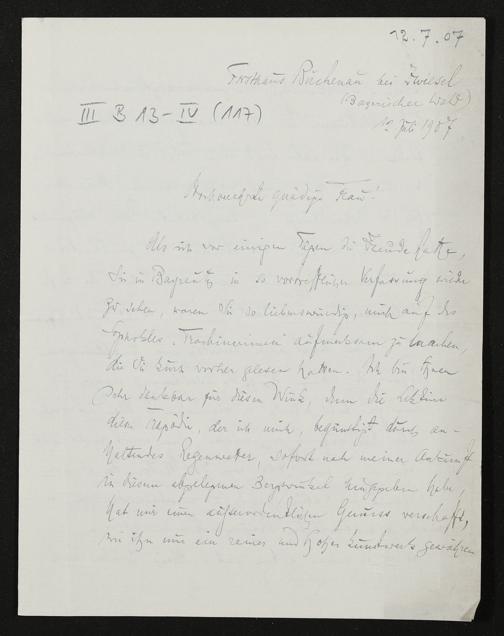 12.7.07
Forsthaus Buchenau bei Zwiesel
(Bayerischer Wald)
III B 13-IV (117)
12. Juli 1907.
Hochverehrte gnädige Frau!
Als ich vor einigen Tagen die Freude hatte,
Sie in Bayreuth in so vortrefflicher Verfassung wieder
zu sehen, waren Sie so liebenswürdig, mich auf des
Sophokles Trachinierinnen aufmerksam zu machen,
die Sie kurz vorher gelesen hatten. Ich bin Ihnen
sehr dankbar für diesen Wink, denn die Lektüre
dieser Tragödie, der ich mich, begünstigt durch an-
haltendes Regenwetter, sofort nach meiner Ankunft
in diesem abgelegenen Bergwinkel hingegeben habe,
hat mir einen ausserordentlichen Genuss verschafft,
wie ihn nur ein reines und hohes Kunstwerk gewähren